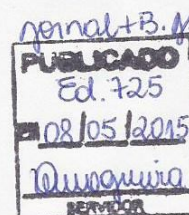 jornal + B. J
PUBLICADO
Ed. 725
EM 08/05/2015
SERVIDOR